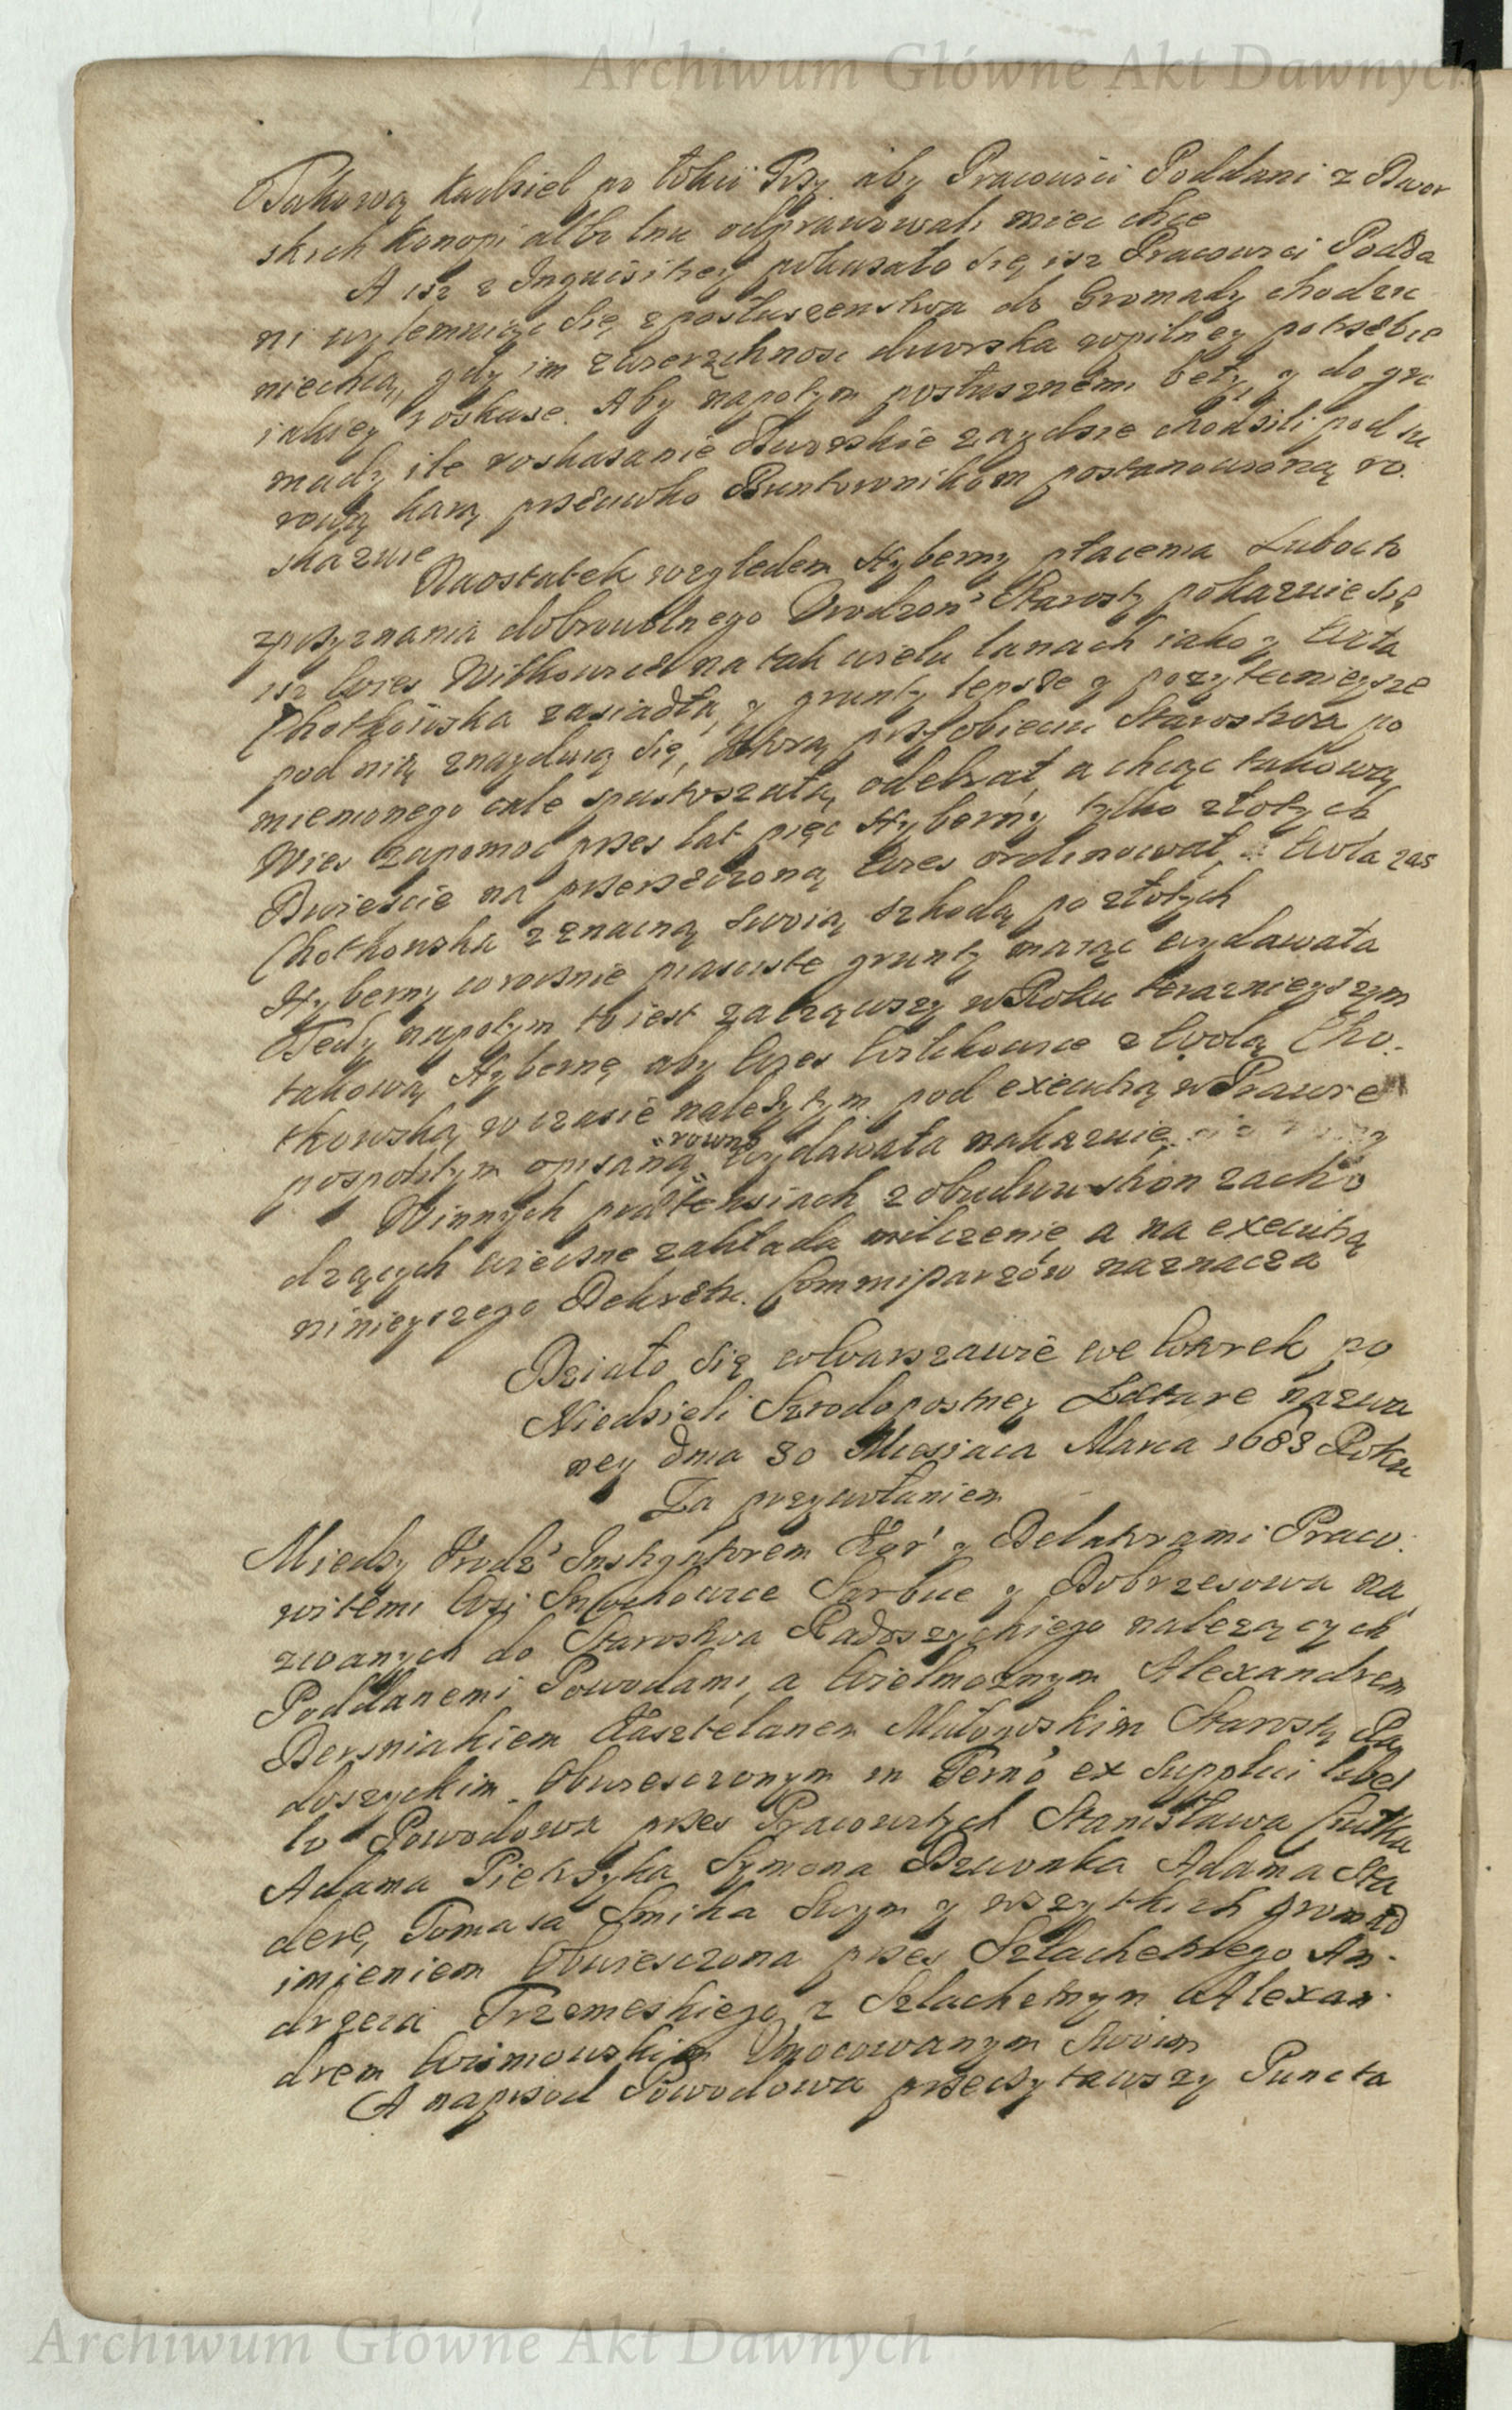 Archiwum Główne Akt Dawnych
Takową kądziel po łokci Trzy aby Pracowici Poddani z Dwor
skich konopi albo lnu odprawowali miec chce
A isz z Inquisitiey pokazało się isz Pracowici Podda
ni wyłemuiąc się z posłuszenstwa do Gromady chodzic
niechcą, gdy im zwierzchnosc dworska w pilney potrzebie
iakiey roskaze. Aby napotym posłusznemi beły, y do gro
mady ile roskazanie Dworskie zaydzie chodzili pod su
rową karą przeciwko Buntownikom postanowioną ro
skazuie
Naostatek względem Hyberny płacenia Lubo to
zprzyznania dobrowolnego Urodzon' Starosty pokazuie się
isz Wies Witkowice na tak wielu łanach iako y Wola
Chotkowska zasiadła, y grunty lepsze y pozytecznieysze
pod nią znayduią się, Którą przy obięciu Starostwa po
mienionego cale spustoszałą odebrał, a chcąc takową
Wies zapomoc przez lat pięc Hyberny tylko złotych
Dwiescie na przerzeczoną Wies ordinował, Wola zas
Chotkowska z znaczną swoią szkodą po złotych
Hyberny corocznie piasczyste grunty maiąc wydawała
Tedy napotym to iest zacząwszy w Roku teraznieyszym
takową Hybernę aby Wies Witkowice z Wolą Cho
tkowską w czasie nalezytym pod executią w Prawie
pospolitym opisaną rowno wydawała nakazuie
W innych praetensiach z obudwu stron zacho
dzących wieczne zakłada milczenie, a na executią
ninieyszego Dekretu. Commissarzów naznacza
Działo się w Warszawie we Wtorek po
Niedzieli Szrodopostney Laetare nazwa
ney Dnia 30 Miesiaca Marca 1683 Roku
Za przywołaniem
Miedzy Urodz' Instygatorem Kor' y Delatorami Praco
witemi Wsi Snochowice Sorbice y Dobrzesowa na
zwanych do Starostwa Radoszyckiego nalezących
Poddanemi Powodami, a Wielmoznym Alexandrem
Bersniakiem Kasztelanem Małogoskim Starostą Ra
doszyckim Obwiesczonym in Termo ex supplici libel
lo Powodowa przez Pracowitych Stanisława
Adama Pietrzyka Symona Dzwonka Adama Sta
derę, Tomasa Smika Swym y wszytkich gromad
imieniem Obwiesczona przez Szlachetnego An
drzeia Trzemeskiego z Szlachetnym Alexan
drem Wismowskim Umocowanym Swoim
A naprzod Powodowa przeczytawszy Puncta
Archiwum Główne Akt Dawnych